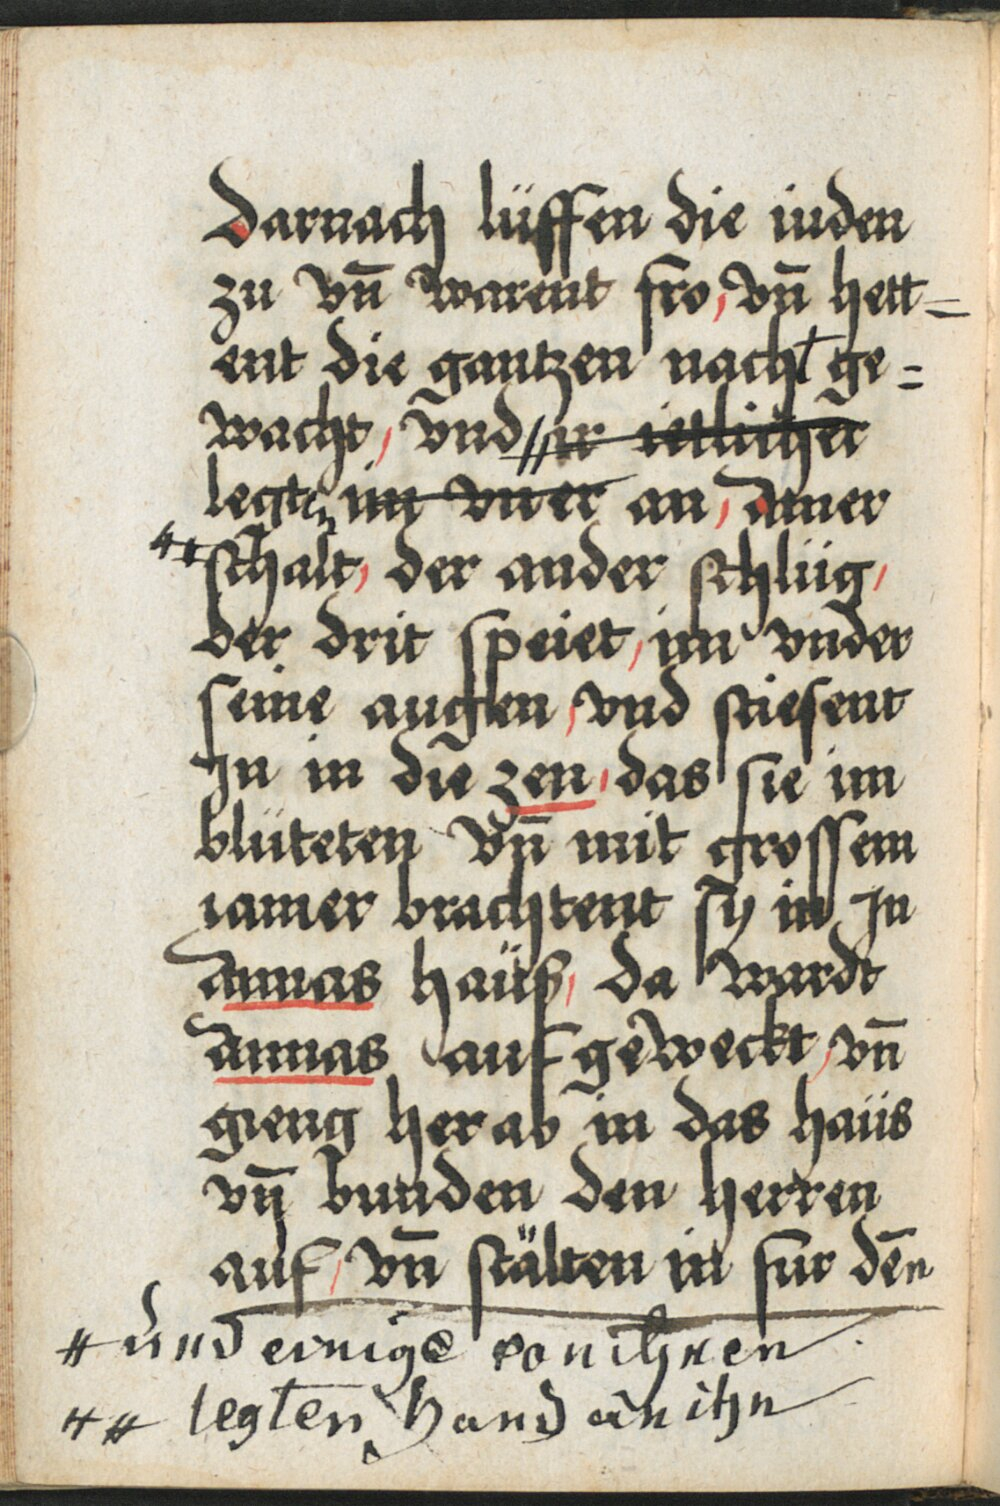 Darnach lüffen die iuden
zu vn̄ warent fro, vn̄ hett=
ent die gantzen nacht ge=
wacht, vnd // ir ietlicher
legten im vner an, ainer
schalt, der ander schlüg,
der drit speiet, im vnder
seine augen, vnd stiesent
In in die zen, das sie im
blüteten vn̄ mit grossem
iamer brachtent sy in In
annas haüß, da wardt
annas auf geweckt, vn̄
gieng her ab in das haüs
vn̄ bunden den herren
auf, vn̄ stälten in fur den
# und einige von ihnen
## legten Hand an ihn